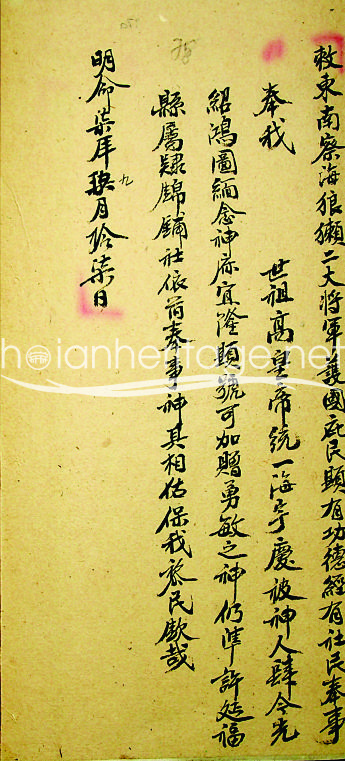 敕東南察海狼獺二大將軍護國庇民顯有功德經有社民奉事
奉我
世祖高皇帝統一海宇慶被神人肆今光
紹鴻圖緬念神庥宜隆顯號可加贈勇敏之神仍準許延福
縣屬隸錦鋪社依前奉事神其相佑保我黎民欽哉
明命柒年玖月拾柒日
九
hoianheritage.net